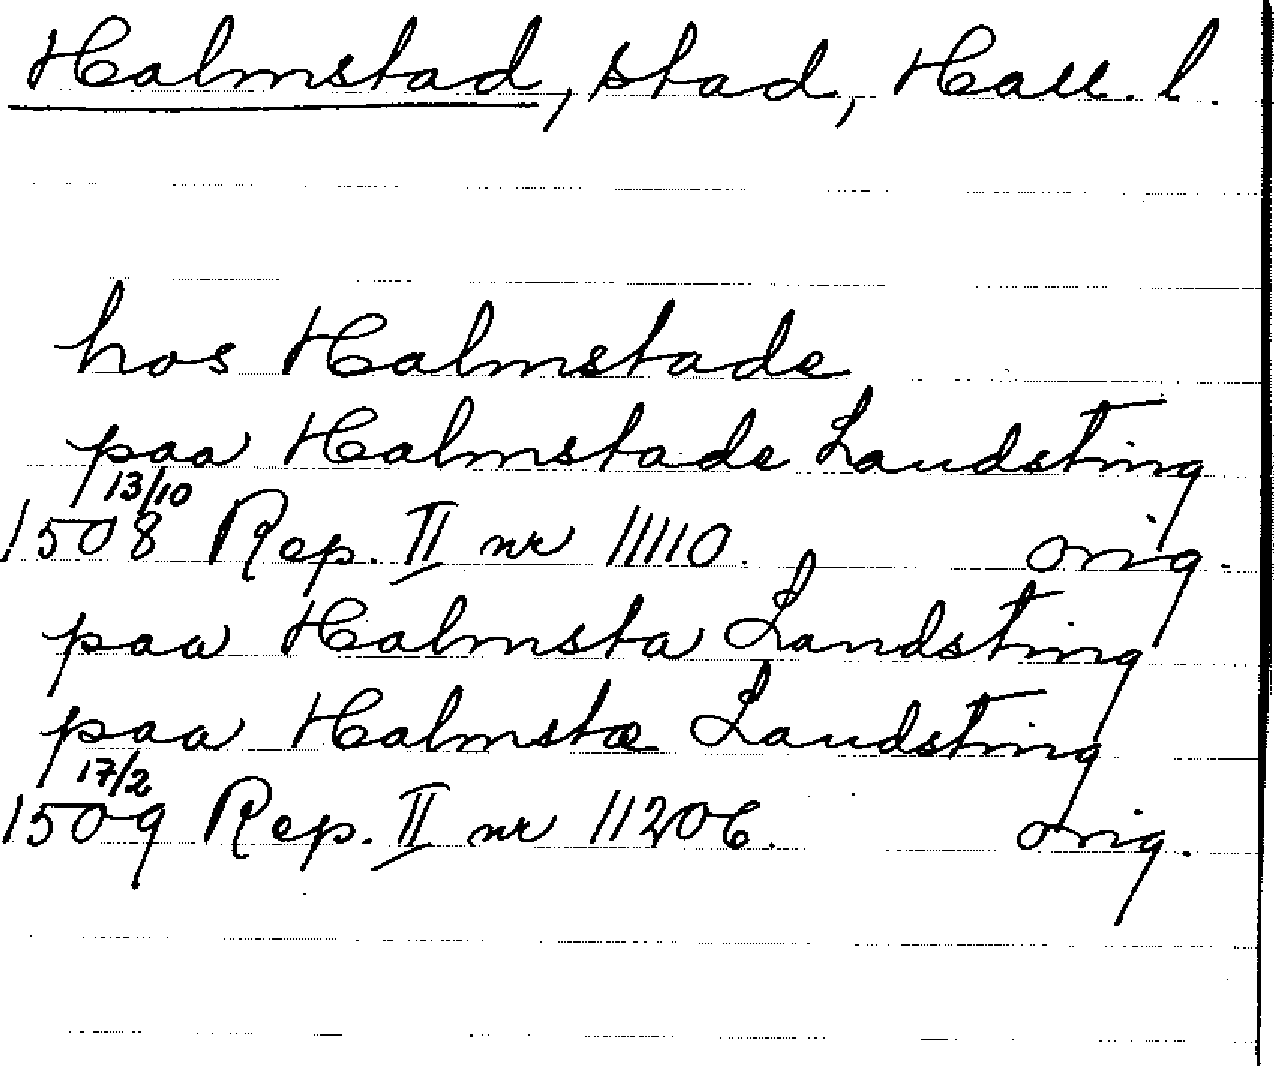 Halmstad, stad, Hall. l.
hos Halmstade
paa Halmstade Landsting
13/10
1508 Rep. II nr 11110. orig.
paa Halmsta Landsting
paa Halmstæ Landsting
17/2
1509 Rep. II nr 11206. orig.